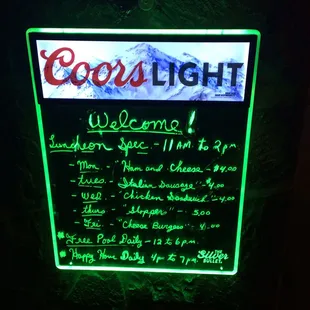 Coors LIGHT
Welcome!
Luncheon Spec - 11 AM. to 2 pm
- Mon - "Ham and Cheese - $4.00
- tues - "Italian Sausage" - $4.00
- wed - "Chicken Sandwich" - 4.00
- thurs - "Stopper" - 5.00
- Fri - "Cheese Burgers" - 4.00
* Free Pool Daily - 12 to 6 p.m.
* Happy Hour Daily 4pm to 7pm
THE
SILVER
BULLET